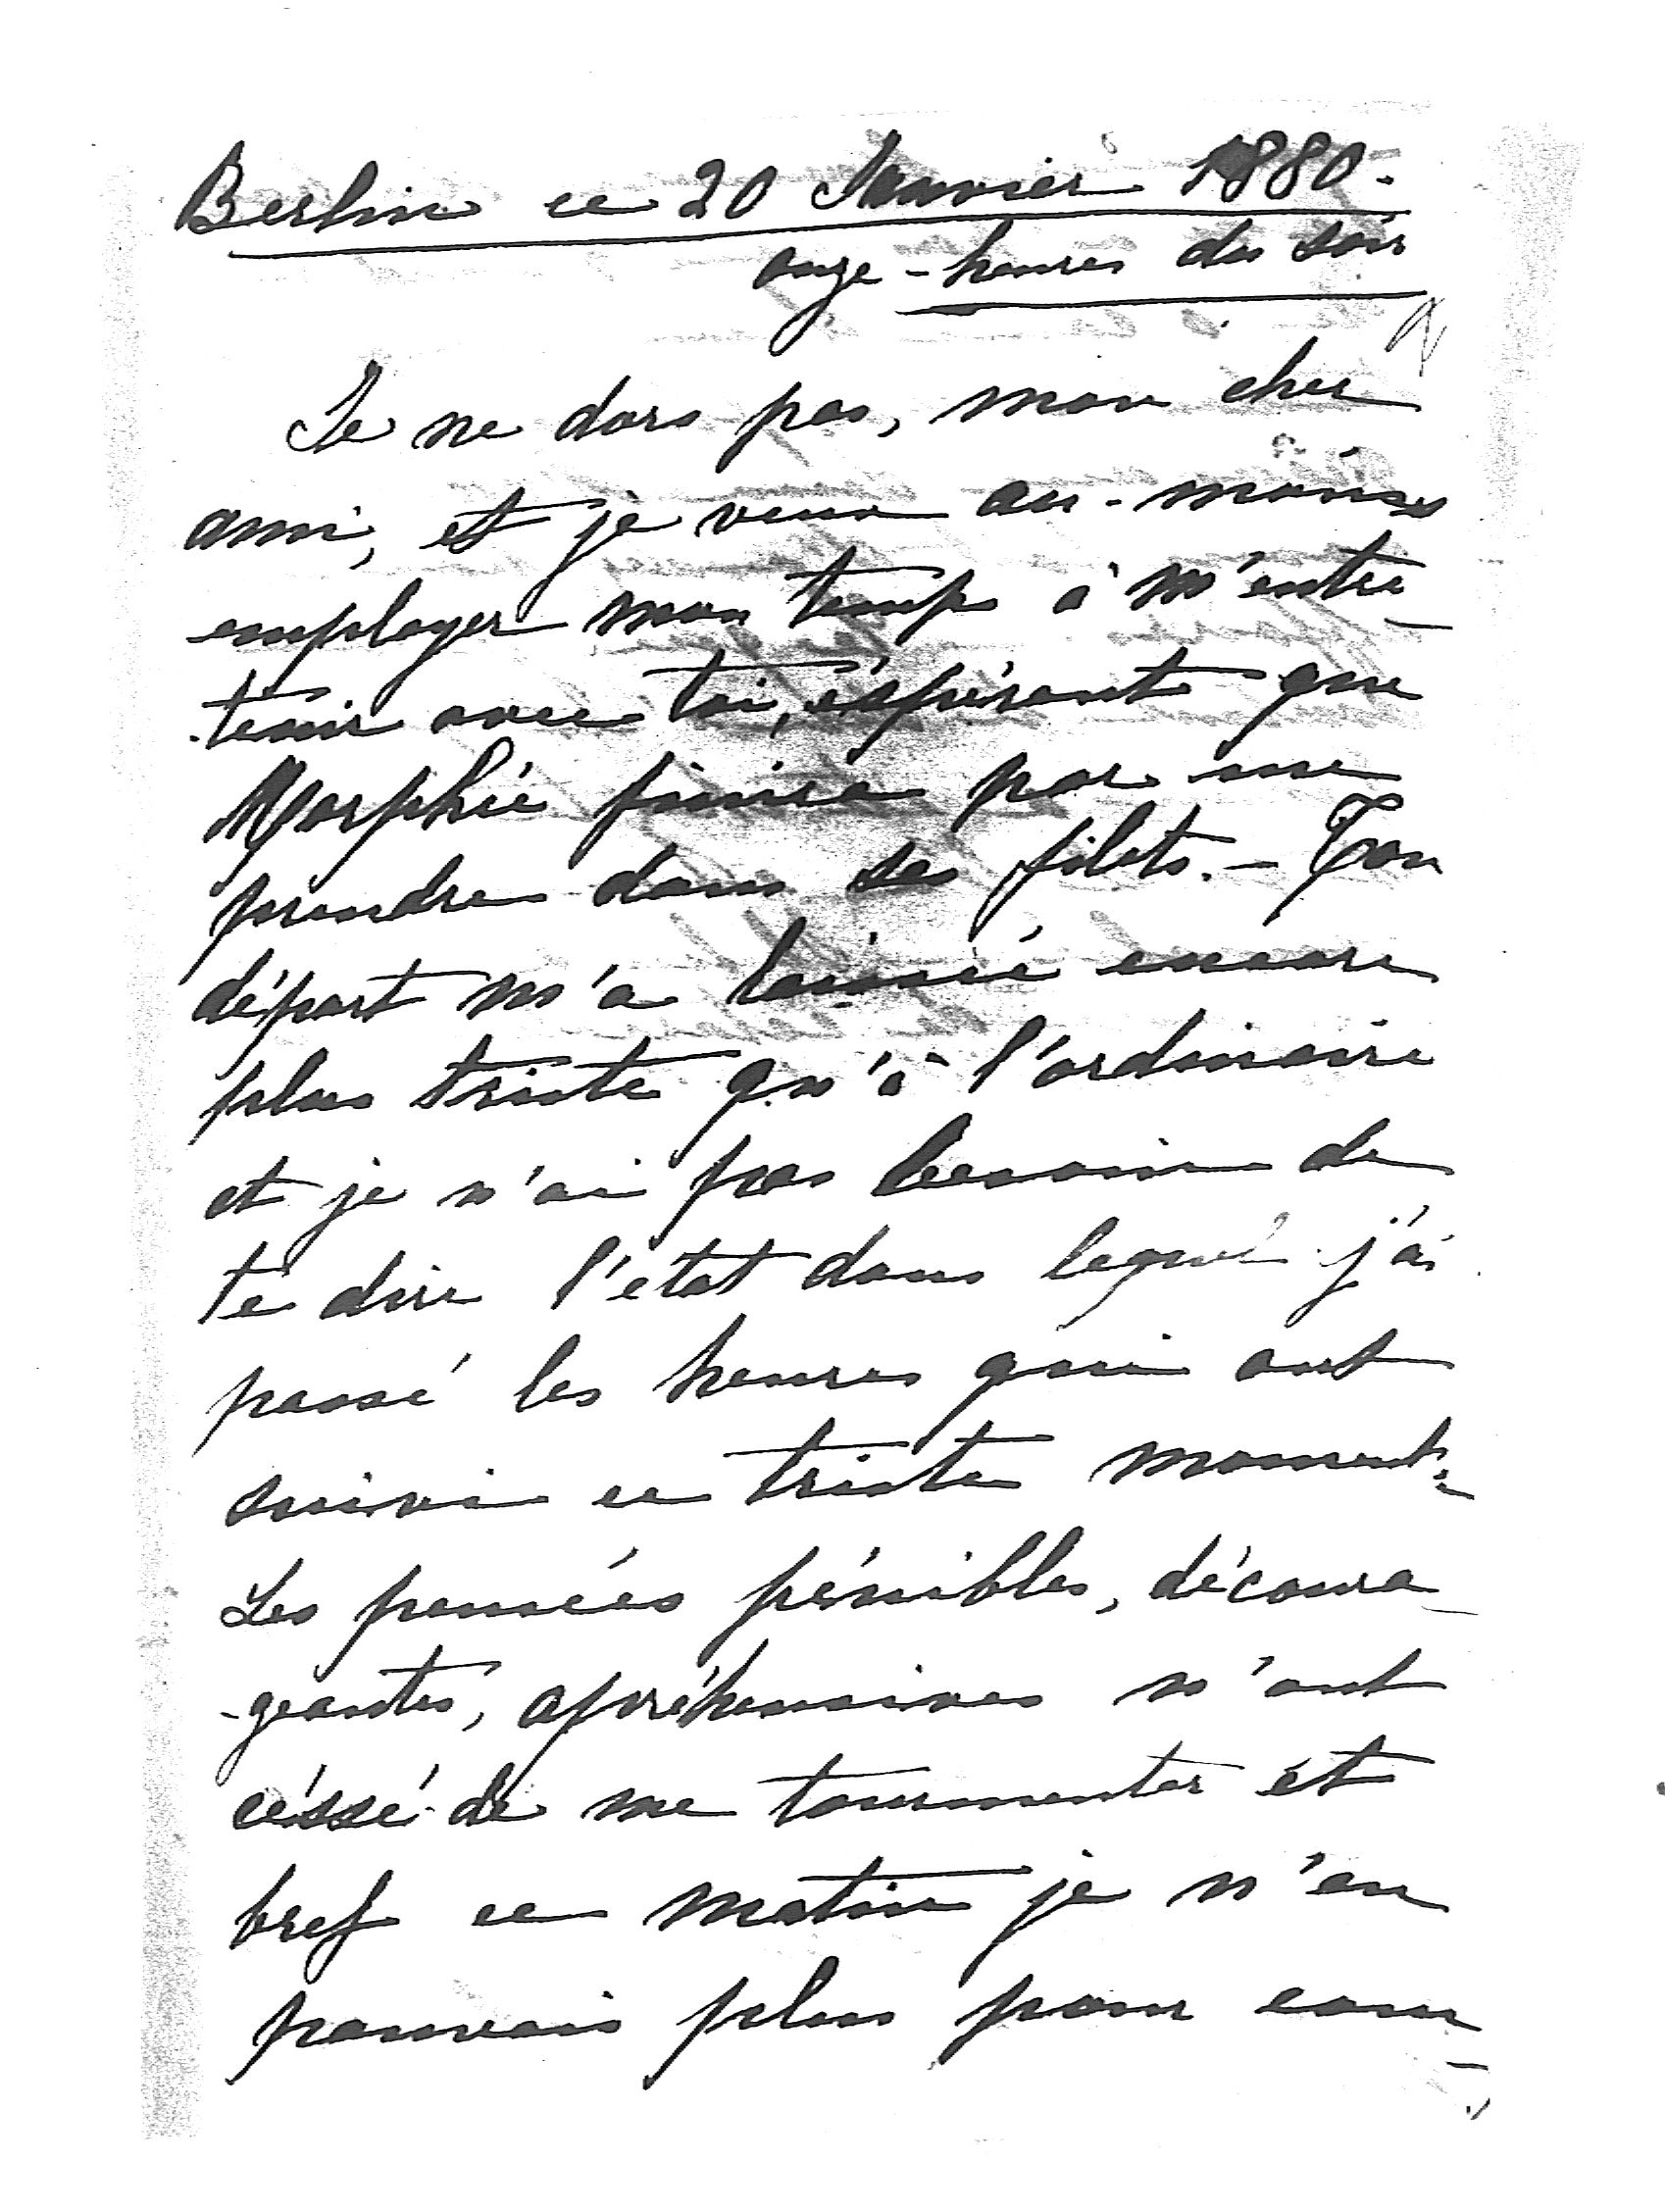 Berlin ce 20 Janvier 1880.
onze - heures du soir
Je ne dors pas, mon cher
ami, et je veux au - moins
employer mon temps à m'entre
-tenir avec toi, éspérant que
Morphée finira par me
prendre dans ses filets. - Ton
départ m'a laissé encore
plus triste qu'à l'ordinaire
et je n'ai pas besoin de
te dire l'état dans lequel j'ai
passé les heures qui ont
suivi ce triste moment.
Les pensées pénibles, découra_
-geantes, apréhensives n'ont
céssé de me tourmenter et
bref ce matin je n'en
pouvais plus pour